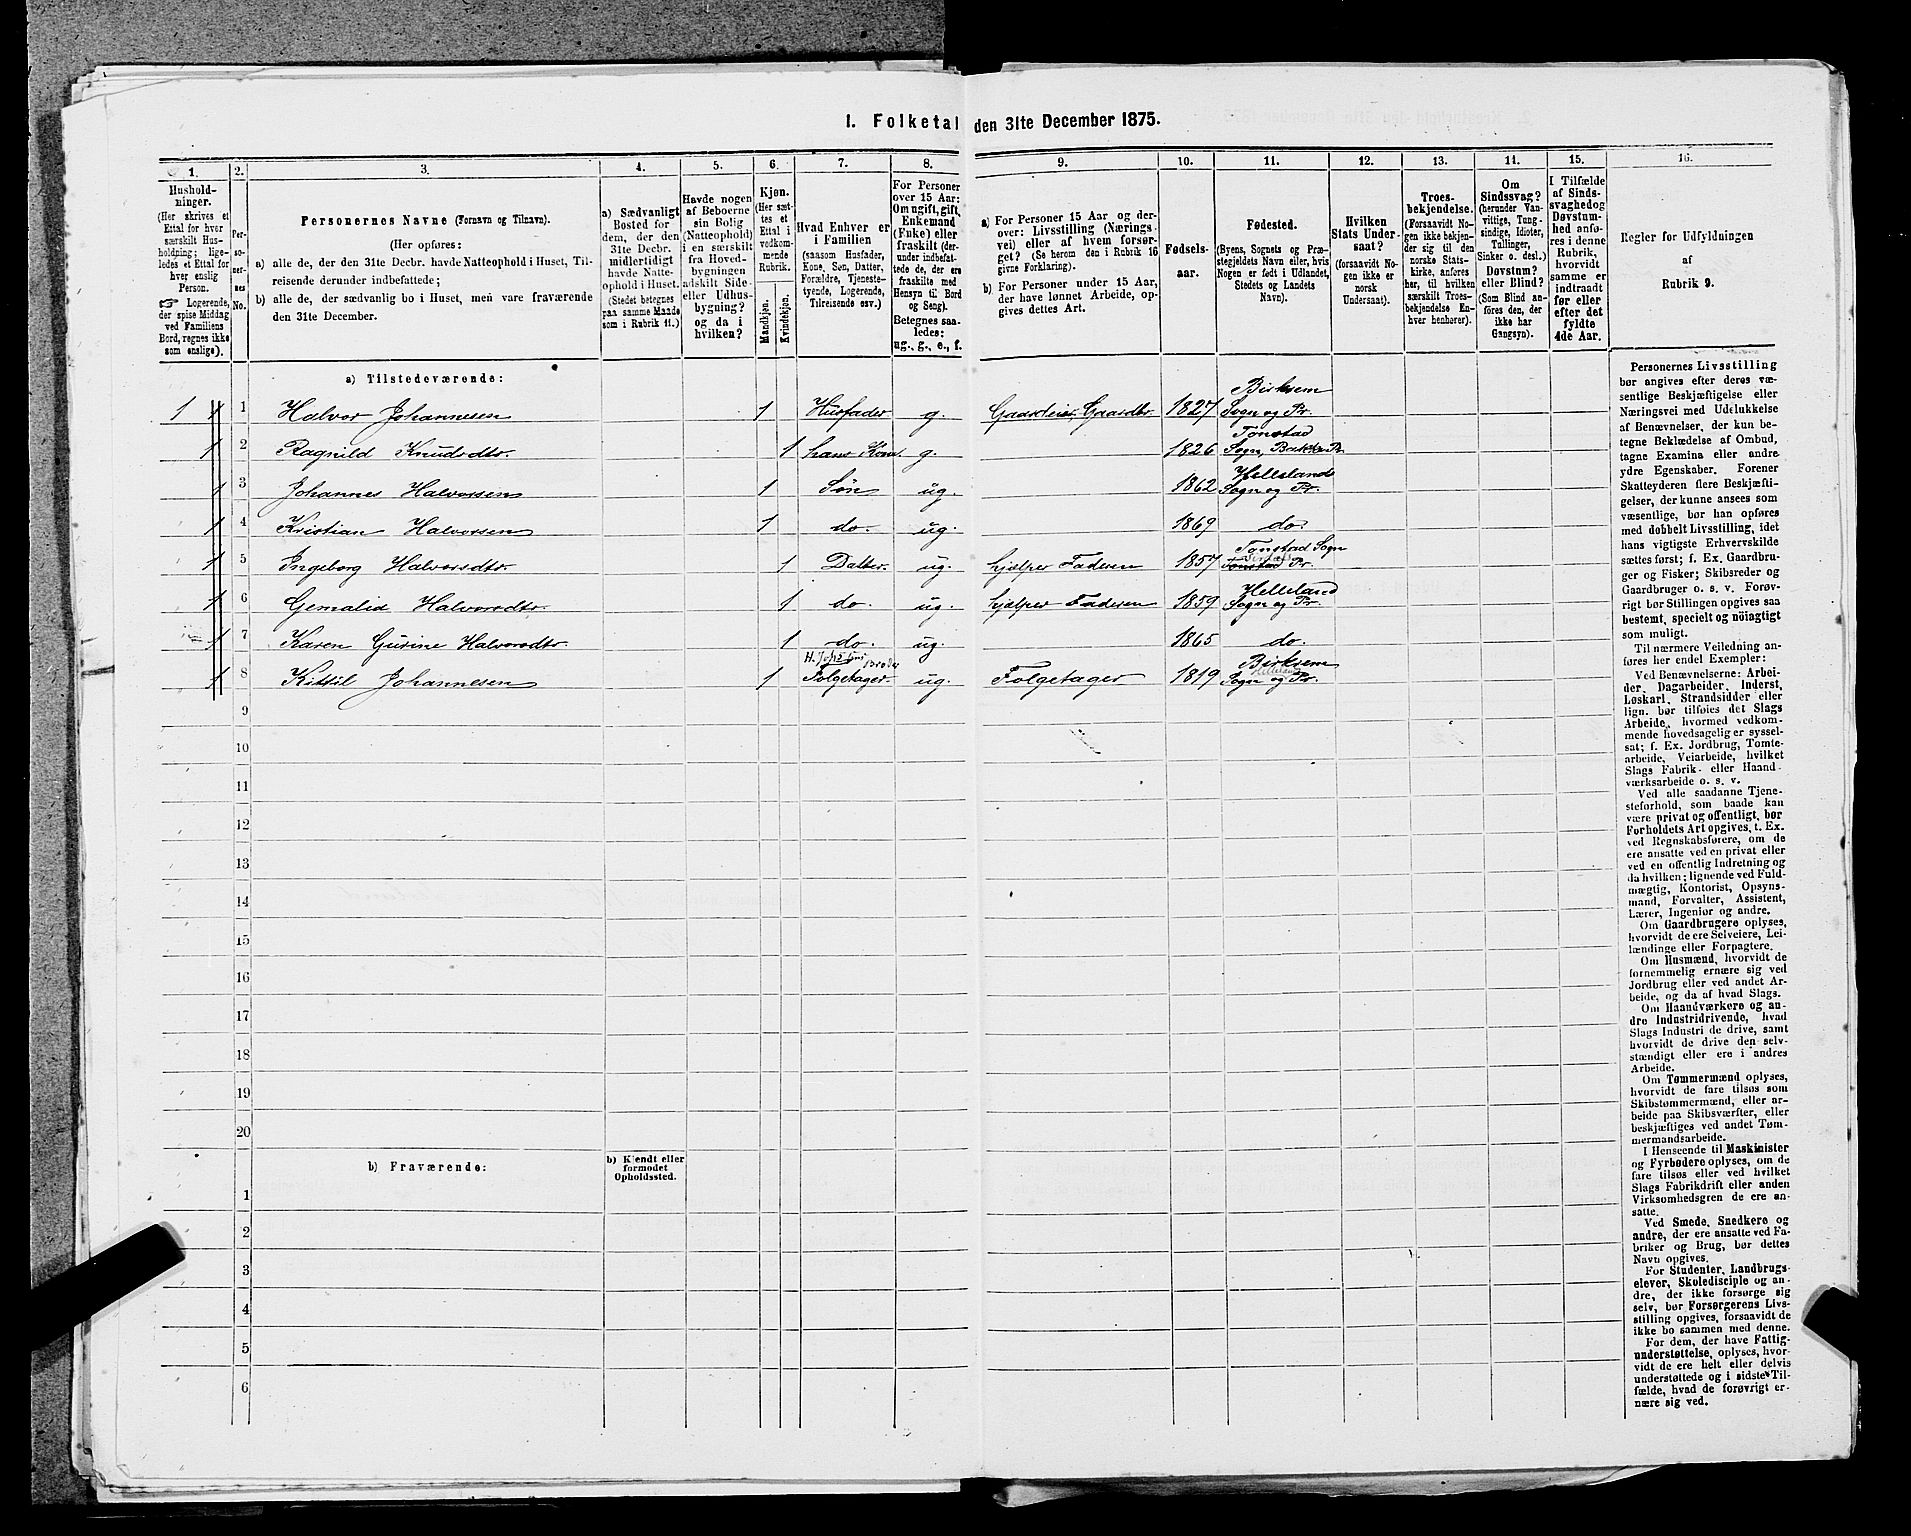 I. Folketal den 31te December 1875.
1. 2. 3. 4. 5. 6. 7. 8. 9. 10. 11. 12. 13. 14. 15. 16.
Hushold-
ninger.
(Her skrives et
Ettal for hver
særskilt Hus-
holdning; lige-
ledes et Ettal for
hver enslig
Person.
☞ Logerende,
der spise Middag
ved Familiens
Bord, regnes ikke
som enslige).
Per-
so-
ner-
nes
No.
Personernes Navne (Fornavn og Tilnavn).
(Her opføres:
a) alle de, der den 31te Decbr. havde Natteophold i Huset, Til-
reisende derunder indbefattede;
b) alle de, der sædvanlig bo i Huset, men vare fraværende
den 31te December.
a) Sædvanligt
Bosted for
dem, der den
31te Decbr.
midlertidigt
havde Natte-
ophold i Huset.
(Stedet betegnes
paa samme Maade
som i Rubrik 11.)
Havde nogen
af Beboerne
sin Bolig
(Natteophold)
i en særskilt
fra Hoved-
bygningen
adskilt Side-
eller Udhus-
bygning?
og da i
hvilken?
Kjøn.
(Her sæt-
tes et
Ettal i
vedkom-
mende
Rubrik.
Mandkjøn.
Kvindekjøn.
Hvad Enhver er
i Familien
(saasom Husfader,
Kone, Søn, Datter,
Forældre, Tjeneste-
tyende, Logerende,
Tilreisende osv.)
For Personer
over 15 Aar:
Om ugift, gift,
Enkemand
(Enke) eller
fraskilt (der-
under indbefat-
tede de, der ere
fraskilte med
Hensyn til Bord
og Seng).
Betegnes saa-
ledes:
ug., g., e., f.
a) For Personer 15 Aar og der-
over: Livsstilling (Nærings-
vei) eller af hvem forsør-
get? (Se herom den i Rubrik 16
givne Forklaring).
b) For Personer under 15 Aar,
der have lønnet Arbeide, op-
gives dettes Art.
Fødsels-
aar.
Fødested.
(Byens, Sognets og Præ-
stegjeldets Navn eller, hvis
Nogen er født i Udlandet,
Stedets og Landets
Navn).
Hvilken
Stats Under-
saat?
(forsaavidt No-
gen ikke er
norsk
Undersaat).
Troes-
bekjendelse.
(Forsaavidt No-
gen ikke bekjen-
der sig til den
norske Stats-
kirke, anføres
her, til hvilken
særskilt Troes-
bekjendelse En-
hver henhører).
Om
Sindssvag?
(herunder Van-
vittige, Tung-
sindige, Idioter,
Tullinger,
Sinker o. desl.)
Døvstum?
eller Blind?
(Som Blind an-
føres den, der
ikke har
Gangsyn).
I Tilfælde
af Sinds-
svaghed og
Døvstum-
hed anføres
i denne
Rubrik,
hvorvidt
samme er
indtraadt
før eller
efter det
fyldte
4de Aar.
Regler for Udfyldningen
af
Rubrik 9.
a) Tilstedeværende:
1 1 1 Halvor Johannesen 1 Husfader g. Gaardeier, Gaardbr. 1827 Birksem Sogn og Pr.
1 2 Ragnild Knudsdtr. 1 hans Kone g. 1826 Tonstad Sogn, Bakke Pr.
1 3 Johannes Halvorsen 1 Søn ug. 1862 Helleland Sogn og Pr.
1 4 Kristian Halvorsen 1 do. ug. 1869 do.
1 5 Ingeborg Halvorsdtr. 1 Datter ug. hjælper Faderen 1857 Tonstad Sogn Tonstad Pr.
1 6 Gemalid Halvorsdtr. 1 do. ug. hjælper Faderen 1859 Helleland Sogn og Pr.
1 7 Karen Gurine Halvorsdtr. 1 do. ug. 1865 do.
1 8 Kittil Johannesen 1 Broder Folgetager ug. Folgetager 1819 Birksem Helleland Sogn og Pr.
9
10
11
12
13
14
15
16
17
18
19
20
b) Fraværende:
b) Kjendt eller
formodet
Opholdssted.
1
2
3
4
5
6
Personernes Livsstilling
bør angives efter deres væ-
sentlige Beskjæftigelse eller
Næringsvei med Udelukkelse
af Benævnelser, der kun be-
tegne Beklædelse af Ombud,
tagne Examina eller andre
ydre Egenskaber. Forener
Skatteyderen flere Beskjæfti-
gelser, der kunne ansees som
væsentlige, bør han opføres
med dobbelt Livsstilling, idet
hans vigtigste Erhvervskilde
sættes først; f. Ex. Gaardbru-
ger og Fisker; Skibsreder og
Gaardbruger o. s. v. Forøv-
rigt bør Stillingen opgives saa
bestemt, specielt og nöiagtigt
som muligt.
Til nærmere Veiledning an-
føres her endel Exempler:
Ved Benævnelserne: Arbei-
der, Dagarbeider, Inderst,
Løskarl, Strandsidder eller
lign. bør tilføies det Slags
Arbeide, hvormed vedkom-
mende hovedsagelig er syssel-
sat; f. Ex. Jordbrug, Tomte-
arbeide, Veiarbeide, hvilket
Slags Fabrik- eller Haand-
værksarbeide o. s. v.
Ved alle saadanne Tjene-
steforhold, som baade kan
være privat og offentligt, bør
Forholdets Art opgives, t. Ex.
ved Regnskabsførere, om de
ere ansatte ved en privat eller
ved en offentlig Indretning og
da hvilken; lignende ved Fuld-
mægtig, Kontorist, Opsyns-
mand, Forvalter, Assistent,
Lærer, Ingeniør og andre.
Om Gaardbrugere oplyses,
hvorvidt de ere Selveiere, Lei-
lændinge eller Forpagtere.
Om Husmænd, hvorvidt de
fornemmelig ernære sig ved
Jordbrug eller ved andet Ar-
beide, og da af hvad Slags.
Om Haandværkere og an-
dre Industridrivende, hvad
Slags Industri de drive, samt
hvorvidt de drive den selv-
stændigt eller ere i andres
Arbeide.
Om Tømmermænd oplyses,
hvorvidt de fare tilsøs som
Skibstømmermænd, eller ar-
beide paa Skibsværfter, eller
beskjæftiges ved andet Tøm-
mermandsarbeide.
I Henseende til Maskinister
og Fyrbødere oplyses, om de
fare tilsøs eller ved hvilket
Slags Fabrikdrift eller anden
Virksomhedsgren de ere an-
satte.
Ved Smede, Snedkere og
andre, der ere ansatte ved Fa-
briker og Brug, bør dettes
Navn opgives.
For Studenter, Landbrugs-
elever, Skoledisciple og an-
dre, der ikke forsørge sig
selv, bør Forsørgerens Livs-
stilling opgives, forsaavidt de
ikke bo sammen med denne.
For dem, der have Fattig-
understøttelse, oplyses, hvor-
vidt de ere helt eller delvis
understøttede og i sidste Til-
fælde, hvad de forøvrigt er-
nære sig ved.